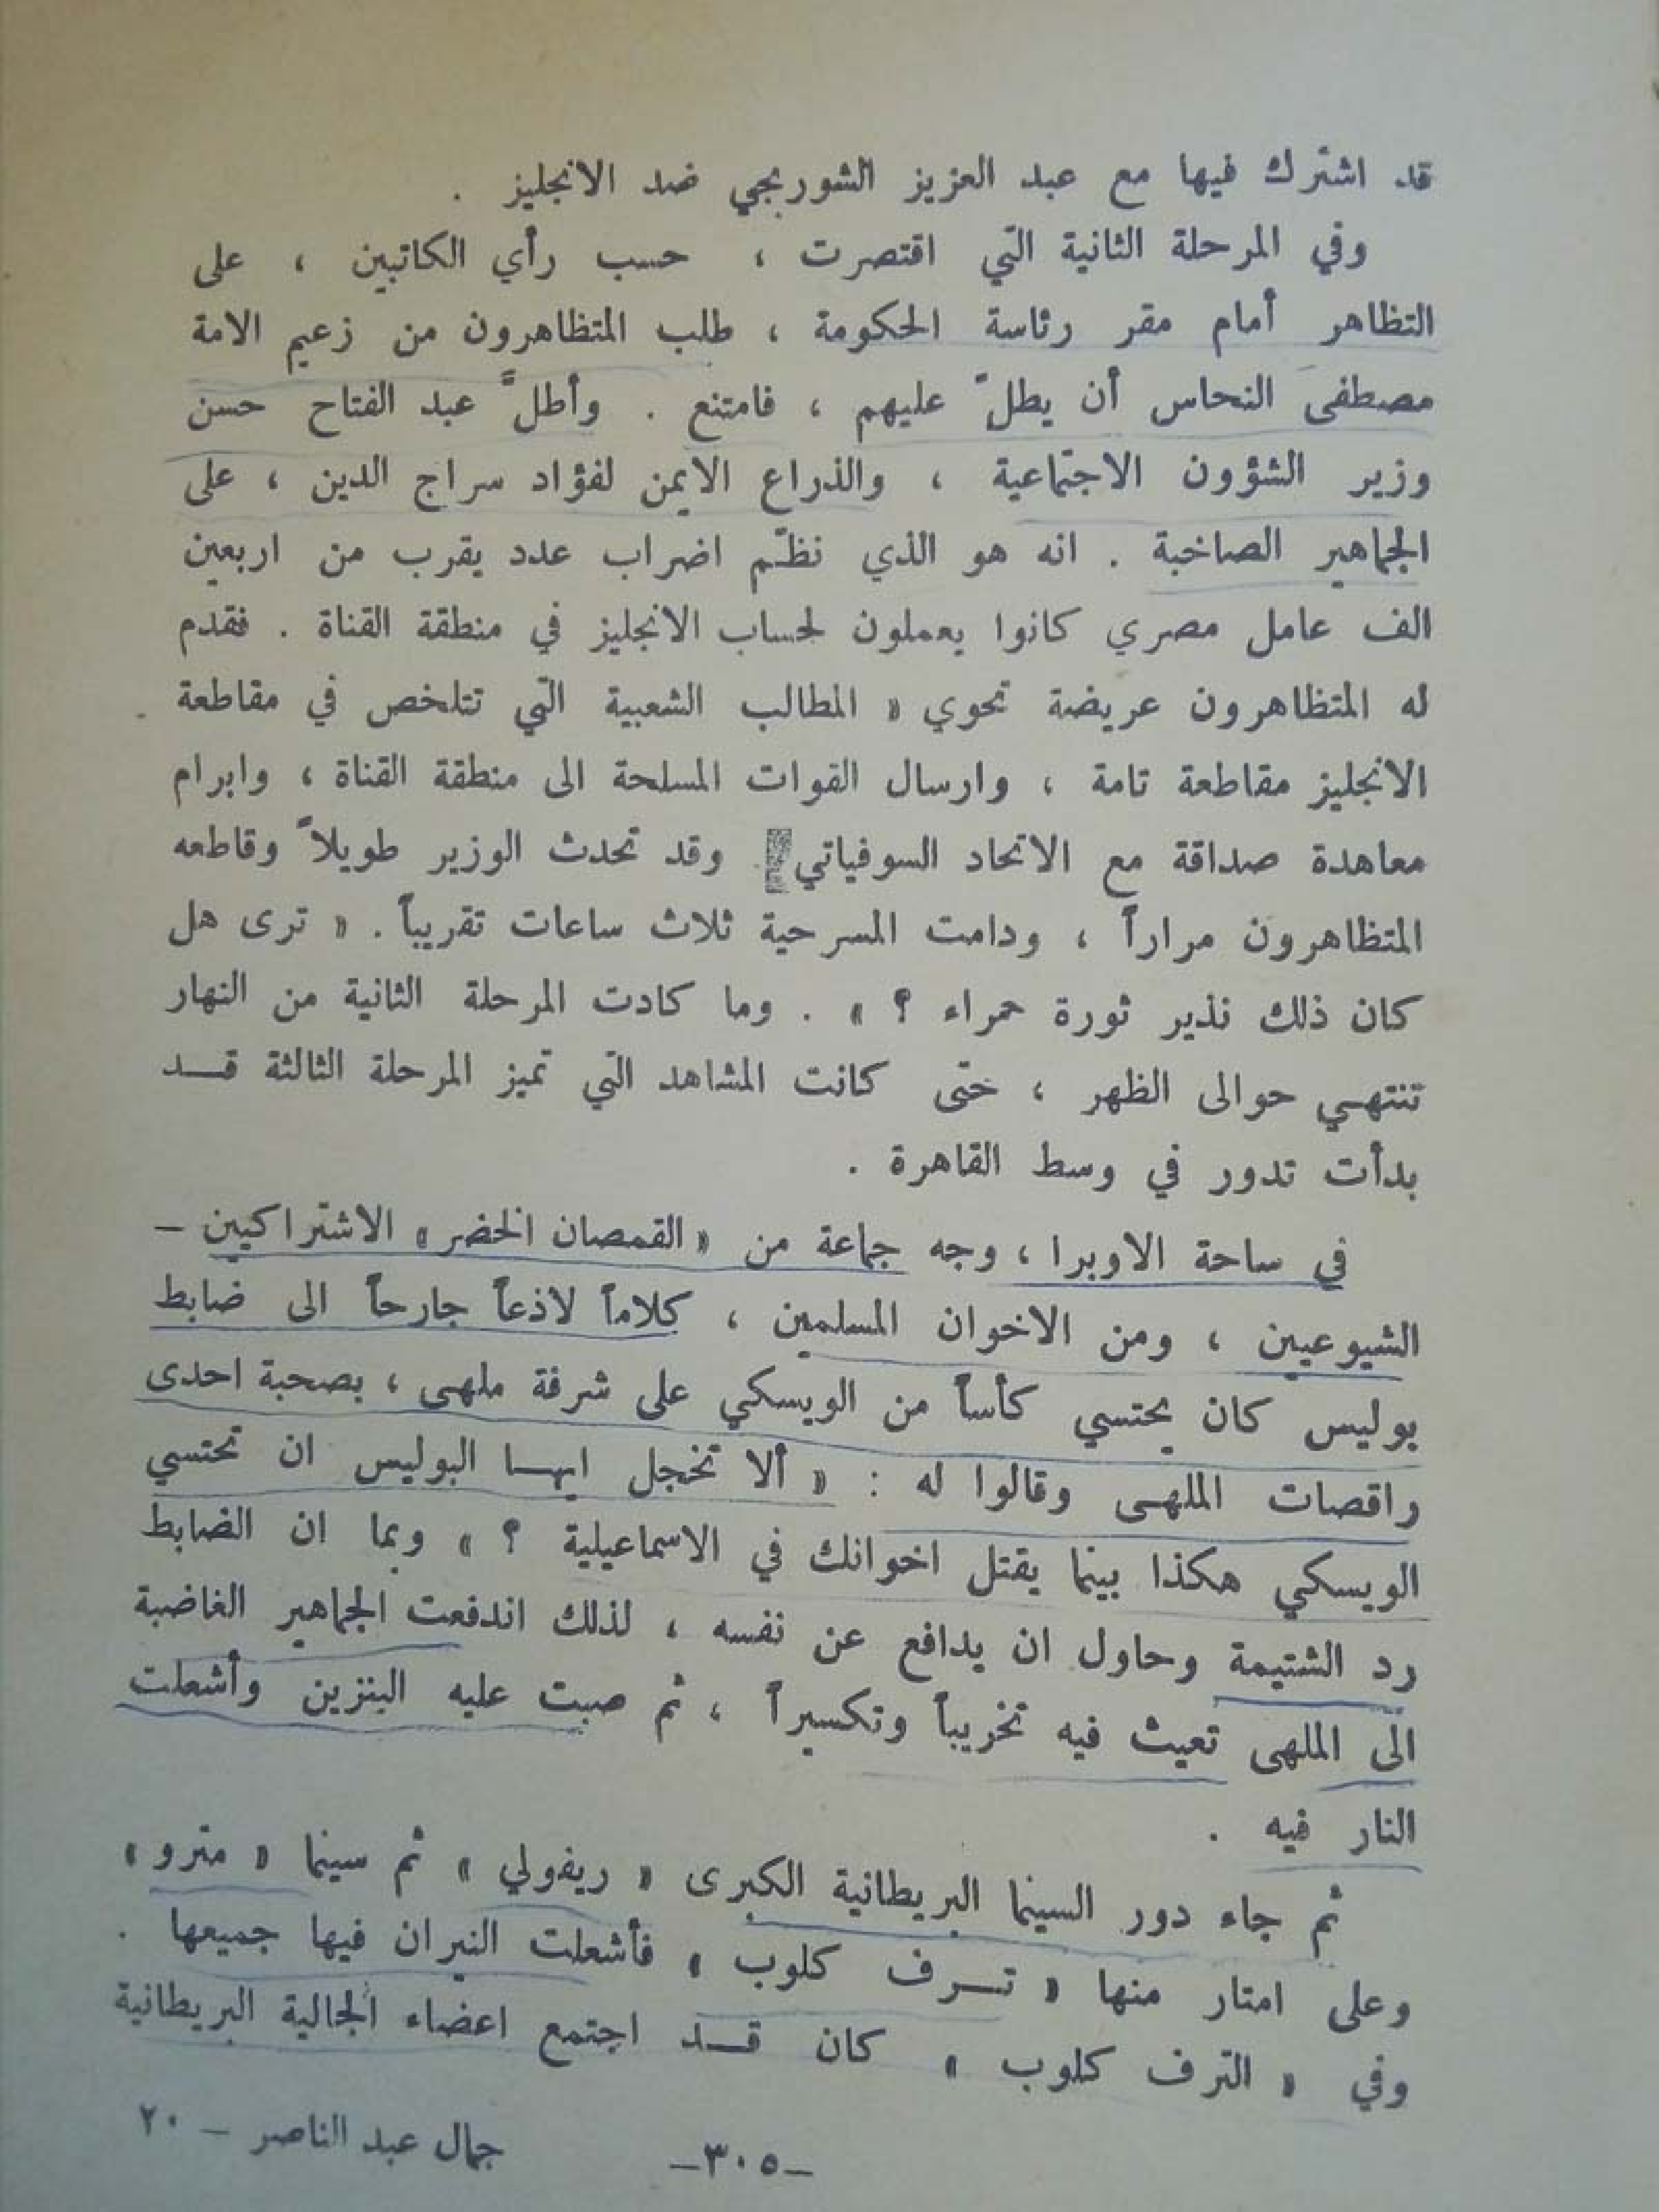 قد اشترك فيها مع عبد العزيز الشوربجي ضد الانجليز .
وفي المرحلة الثانية التي اقتصرت ، حسب رأي الكاتبين ، على
التظاهر أمام مقر رئاسة الحكومة ، طلب المتظاهرون من زعيم الامة
مصطفى النحاس أن يطلّ عليهم ، فامتنع . وأطلّ عبد الفتاح حسن
وزير الشؤون الاجتماعية ، والذراع الايمن لفؤاد سراج الدين ، على
الجماهير الصاخبة . انه هو الذي نظّم اضراب عدد يقرب من اربعين
الف عامل مصري كانوا يعملون لحساب الانجليز في منطقة القناة . فقدم
له المتظاهرون عريضة تحوي « المطالب الشعبية التي تتلخص في مقاطعة
الانجليز مقاطعة تامة ، وارسال القوات المسلحة الى منطقة القناة ، وابرام
معاهدة صداقة مع الاتحاد السوفياتي . وقد تحدث الوزير طويلاً وقاطعه
المتظاهرون مراراً ، ودامت المسرحية ثلاث ساعات تقريباً . « ترى هل
كان ذلك نذير ثورة حمراء ؟ » . وما كادت المرحلة الثانية من النهار
تنتهي حوالى الظهر ، حتى كانت المشاهد التي تميز المرحلة الثالثة قد
بدأت تدور في وسط القاهرة .
في ساحة الاوبرا ، وجه جماعة من « القمصان الخضر » الاشتراكيين –
الشيوعيين ، ومن الاخوان المسلمين ، كلاماً لاذعاً جارحاً الى ضابط
بوليس كان يحتسي كأساً من الويسكي على شرفة ملهى ، بصحبة احدى
راقصات الملهى وقالوا له : « ألا تخجل ايها البوليس ان تحتسي
الويسكي هكذا بينما يقتل اخوانك في الاسماعيلية ؟ » وبما ان الضابط
رد الشتيمة وحاول ان يدافع عن نفسه ، لذلك اندفعت الجماهير الغاضبة
الى الملهى تعيث فيه تخريباً وتكسيراً ، ثم صبت عليه البنزين وأشعلت
النار فيه .
ثم جاء دور السينما البريطانية الكبرى « ريفولي » ثم سينما « مترو »
وعلى امتار منها « ترف كلوب » فأشعلت النيران فيها جميعها .
وفي « الترف كلوب » كان قد اجتمع اعضاء الجالية البريطانية
–٣٠٥– جمال عبد الناصر – ٢٠